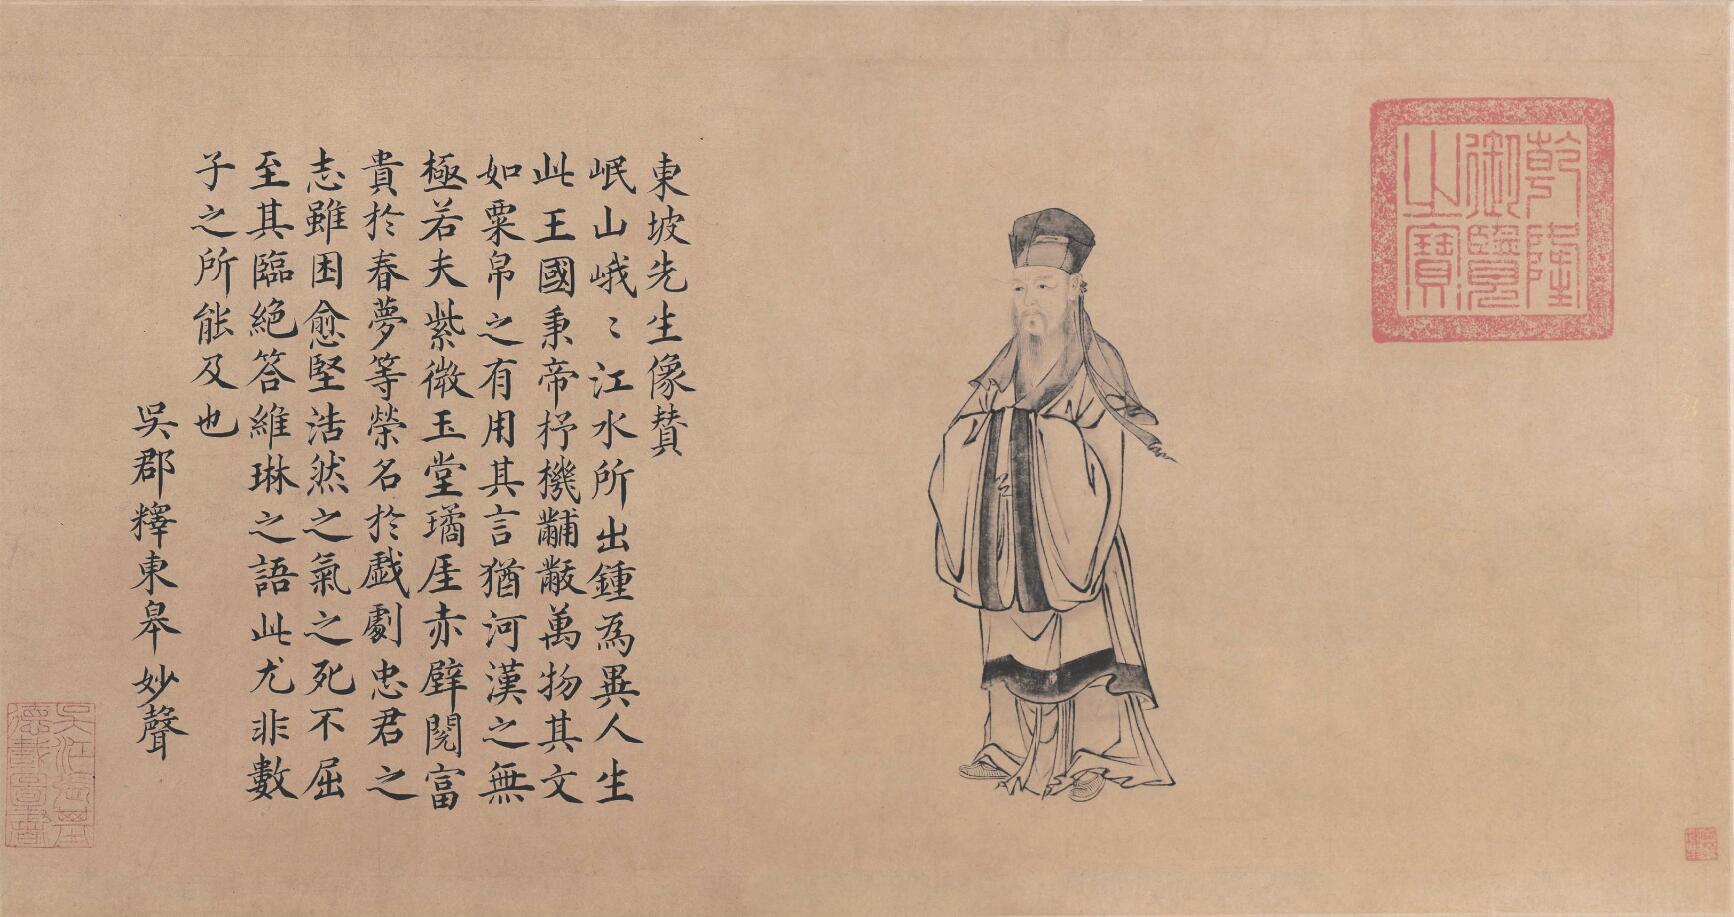 乾隆
御覽
之寶
東坡先生像贊
岷山峨〻江水所出鍾為異人生
此王國秉帝抒機黼黻萬物其文
如粟帛之有用其言猶河漢之無
極若夫紫微玉堂璚厓赤壁閱富
貴於春夢等榮名於戲劇忠君之
志雖困愈堅浩然之氣之死不屈
至其臨絕答維琳之語此尤非數
子之所能及也
吳郡釋東皋妙聲